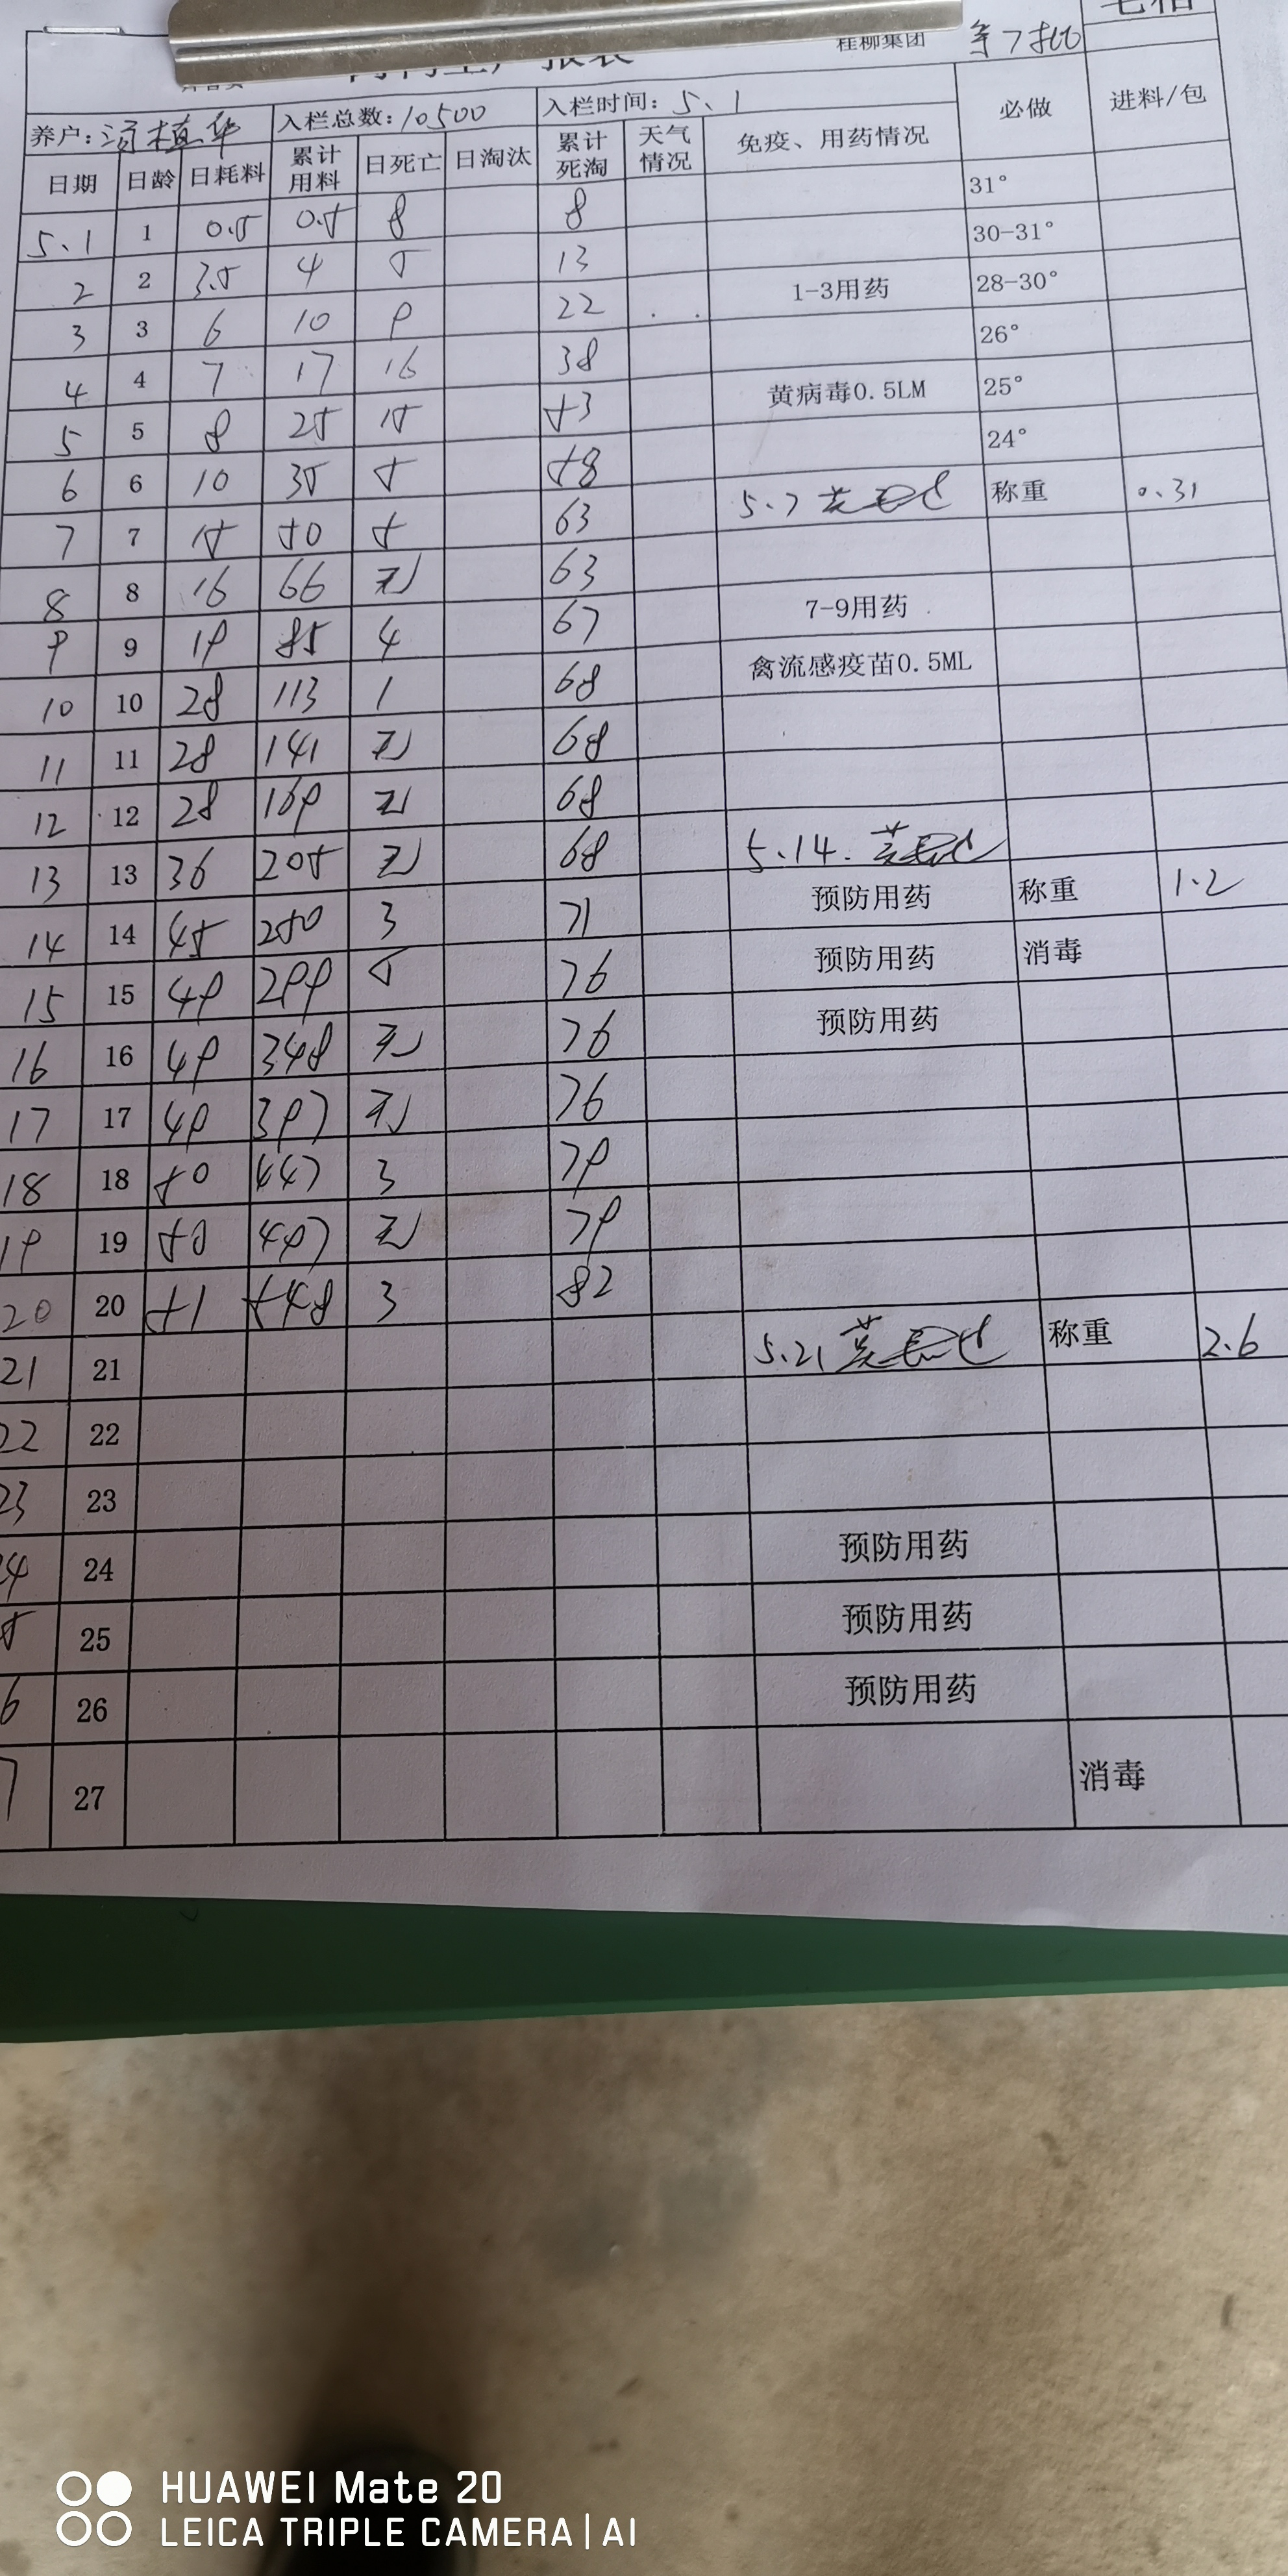 桂柳集团 第7批
养户: 植华 入栏总数:10500 入栏时间: 5.1 必做 进料/包
日期 日龄 日耗料 累计用料 日死亡 日淘汰 累计死淘 天气情况 免疫、用药情况
5.1 1 0.5 0.5 8 8 31°
2 2 3.5 4 5 13 30-31°
3 3 6 10 9 22 1-3用药 28-30°
4 4 7 17 16 38 26°
5 5 8 25 15 53 黄病毒0.5LM 25°
6 6 10 35 5 58 24°
7 7 15 50 5 63 5.7 称重 0.31
8 8 16 66 无 63
9 9 19 85 4 67 7-9用药
10 10 28 113 1 68 禽流感疫苗0.5ML
11 11 28 141 无 68
12 12 28 169 无 68
13 13 36 205 无 68 5.14.
14 14 45 250 3 71 预防用药 称重 1.2
15 15 49 299 5 76 预防用药 消毒
16 16 49 348 无 76 预防用药
17 17 49 397 无 76
18 18 50 447 3 79
19 19 50 497 无 79
20 20 51 548 3 82
21 21 5.21 称重 2.6
22 22
23 23
24 24 预防用药
5 25 预防用药
6 26 预防用药
7 27 消毒
HUAWEI Mate 20
LEICA TRIPLE CAMERA | AI